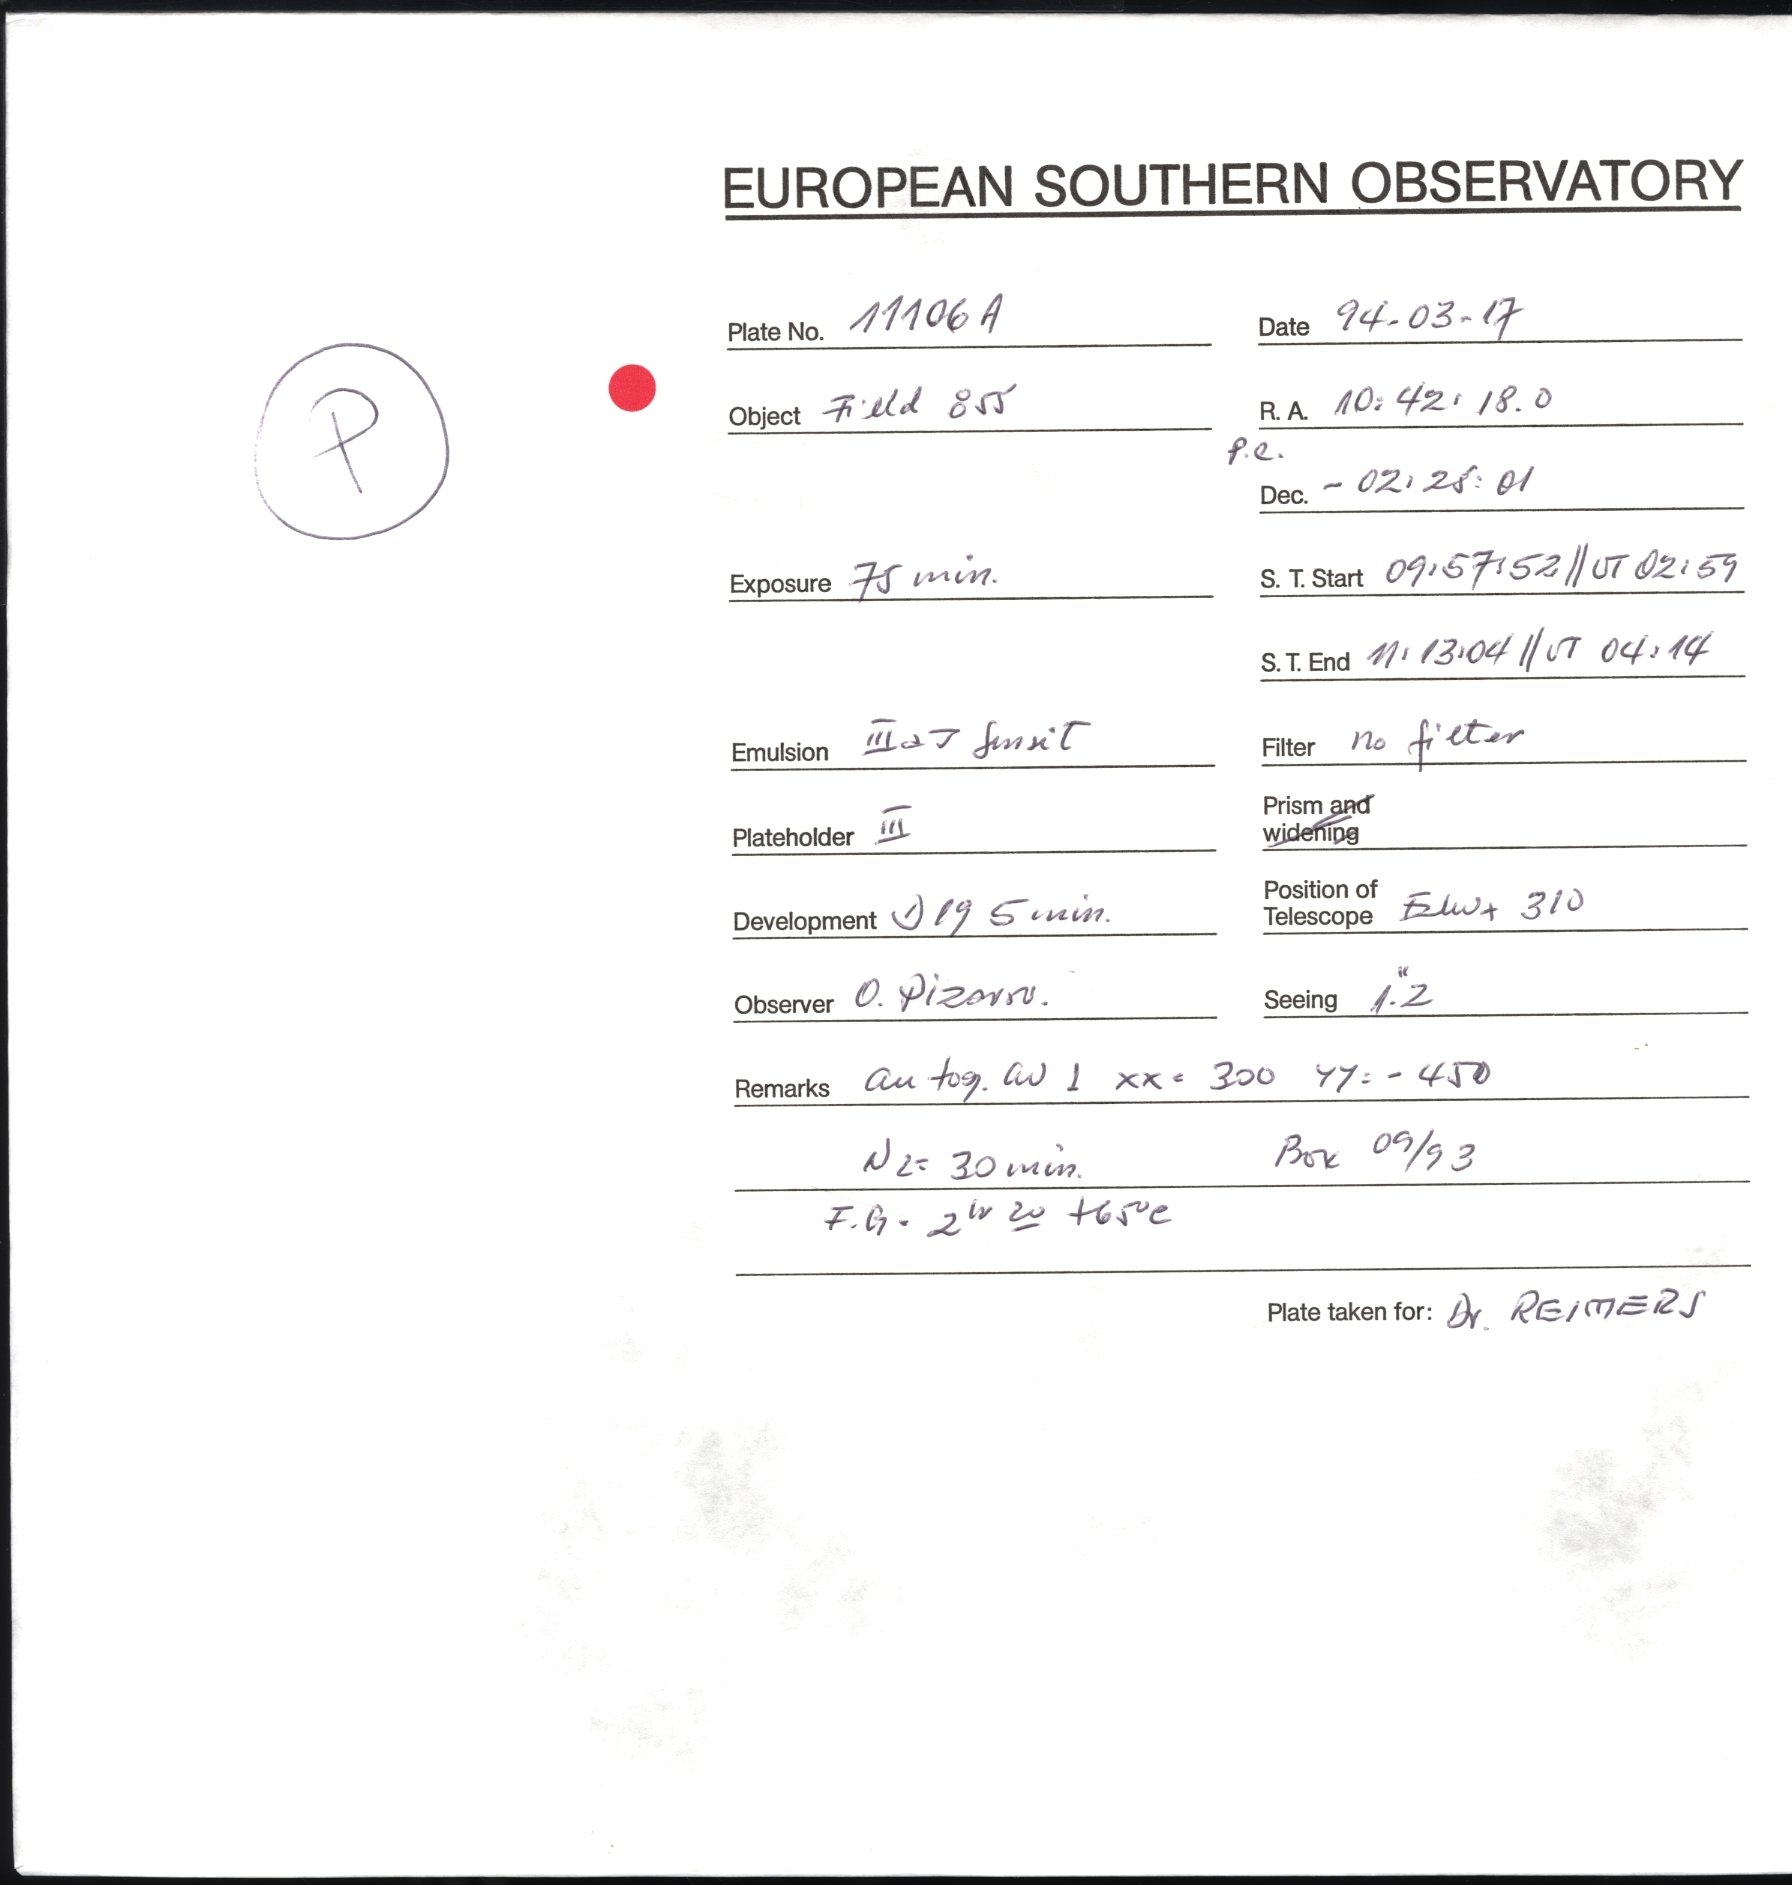 EUROPEAN SOUTHERN OBSERVATORY
Plate No. 11106 A Date 94-03-17
P
Object Field 855 R. A. 10: 42: 18.0
p.e.
Dec. - 02: 28: 01
Exposure 75 min. S. T. Start 09:57:52 // UT 02:59
S. T. End 11: 13:04 // UT 04:14
Emulsion III a J Filter no filter
Plateholder III Prism and
widening
Development 19 5 min. Position of
Telescope 310
Observer O. Pizarro. Seeing 1".2
Remarks 1 xx = 300 yy: - 450
30 min. Box 09/93
F.G. +65°c
Plate taken for: Dr. REIMERS